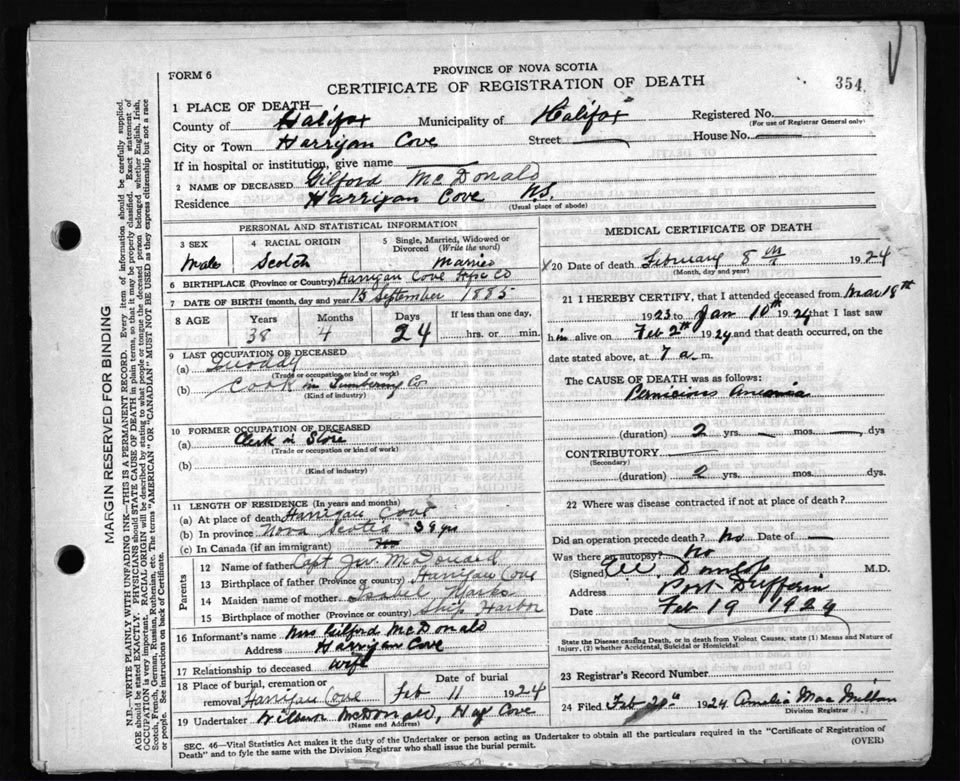 PROVINCE OF NOVA SCOTIA
FORM 6
CERTIFICATE OF REGISTRATION OF DEATH
354
1 PLACE OF DEATH—
County of Halifax Municipality of Halifax Registered No.
(For use of Registrar General only)
City or Town Harrigan Cove Street House No.
If in hospital or institution, give name
2 NAME OF DECEASED Gilford McDonald
Residence Harrigan Cove N.S.
(Usual place of abode)
PERSONAL AND STATISTICAL INFORMATION
3 SEX
Male
4 RACIAL ORIGIN
Scotch
5 Single, Married, Widowed or Divorced (Write the word)
Married
6 BIRTHPLACE (Province or Country) Harrigan Cove Hfx Co
7 DATE OF BIRTH (month, day and year) 15 September 1885
8 AGE Years Months Days If less than one day,
38 4 24 hrs. or min.
9 LAST OCCUPATION OF DECEASED
(a)
(Trade or occupation or kind or work)
(b) Cook in Lumbering Co
(Kind of industry)
10 FORMER OCCUPATION OF DECEASED
(a) Clerk in Store
(Trade or occupation or kind of work)
(b)
(Kind of industry)
11 LENGTH OF RESIDENCE (In years and months)
(a) At place of death Harrigan Cove
(b) In province Nova Scotia 39 yrs
(c) In Canada (if an immigrant)
Parents
12 Name of father Capt Jw. McDonald
13 Birthplace of father (Province or country) Harrigan Cove
14 Maiden name of mother Isabel Marks
15 Birthplace of mother (Province or country) Ship Harbor
16 Informant's name Mrs Gilford McDonald
Address Harrigan Cove
17 Relationship to deceased wife
18 Place of burial, cremation or Date of burial
removal Harrigan Cove Feb 11 1924
19 Undertaker McDonald, Har Cove
(Name and Address)
MEDICAL CERTIFICATE OF DEATH
20 Date of death February 8th 1924
(Month, day and year)
21 I HEREBY CERTIFY, that I attended deceased from Mar 18th
1923 to Jan 10th 1924 that I last saw
him alive on Feb 2nd 1924 and that death occurred, on
date stated above, at 7 a.m.
The CAUSE OF DEATH was as follows:
Pernicious Anemia
(duration) 2 yrs. — mos. — dys
CONTRIBUTORY
(Secondary)
(duration) 2 yrs. mos. dys.
22 Where was disease contracted if not at place of death?
Did an operation precede death? No Date of —
Was there an autopsy? No
(Signed) Dunlop M.D.
Address Port Dufferin
Date Feb 19 1924
State the Disease causing Death, or in death from Violent Causes, state (1) Means and Nature of
Injury, (2) whether Accidental, Suicidal or Homicidal.
23 Registrar's Record Number
24 Filed Feb 20th 1924 Amelia MacMillan
Division Registrar
SEC. 46—Vital Statistics Act makes it the duty of the Undertaker or person acting as Undertaker to obtain all the particulars required in the "Certificate of Registration of
Death" and to fyle the same with the Division Registrar who shall issue the burial permit.
(OVER)
MARGIN RESERVED FOR BINDING
N.B.—WRITE PLAINLY WITH UNFADING INK—THIS IS A PERMANENT RECORD. Every item of information should be carefully supplied.
AGE should be stated EXACTLY. PHYSICIANS should state CAUSE OF DEATH in plain terms, so that it may be properly classified. Exact statement of
OCCUPATION is very important. RACIAL ORIGIN will be described by stating to what people or tongue the deceased person belonged whether English, Irish,
Scotch, French, German, Russian, Ruthenian, etc. The terms "AMERICAN" or "CANADIAN" MUST NOT BE USED as they express citizenship but not a race
or people. See instructions on back of Certificate.